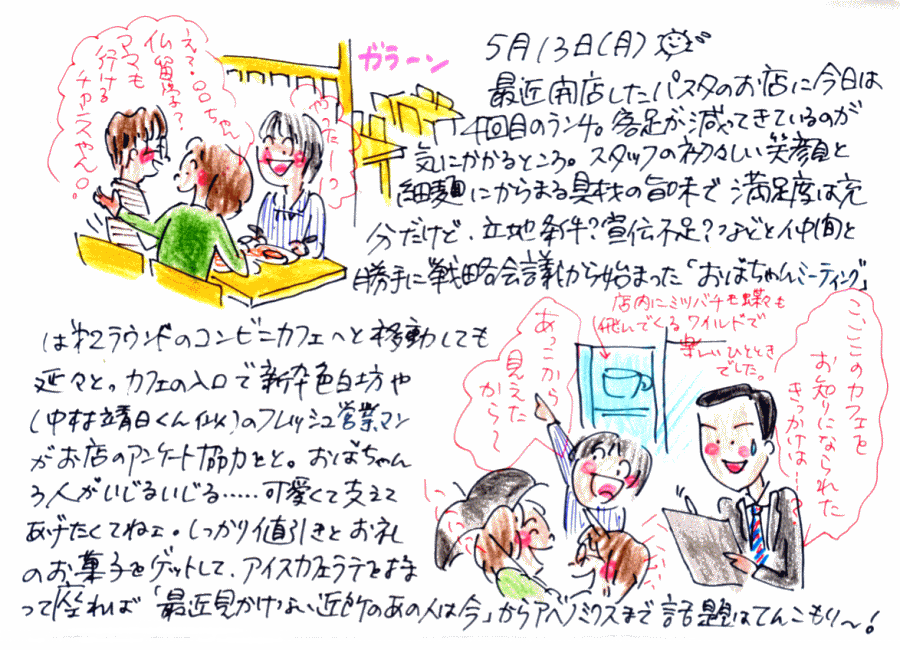 えっ!○○ちゃん
仏留学?
ママも
行ける
チャンスやん。
やったーっ
ガラーン
5月13日(月)
最近開店したパスタのお店に今日は
4回目のランチ。客足が減ってきているのが
気にかかるところ。スタッフの初々しい笑顔と
細麺にからまる具材の旨味で満足度は充
分だけど、立地条件?宣伝不足?などと仲間と
勝手に戦略会議から始まった「おばちゃんミーティング」
は第2ラウンドのコンビニカフェへと移動しても
延々と。カフェの入口で新卒色白坊や
(中村靖日くん似)のフレッシュ営業マン
がお店のアンケート協力をと。おばちゃん
3人がいじるいじる……可愛くて支えて
あげたくてねェ。しっかり値引きとお礼
のお菓子をゲットして、アイスカフェラテをはさ
って座れば「最近見かけない近所のあの人は今」からアベノミクスまで話題はてんこもり〜!
店内にミツバチも蝶々も
飛んでくるワイルドで
楽しいひととき
でした。
あっこから
見えた
から〜
こ、ここのカフェを
お知りになられた
きっかけは…?